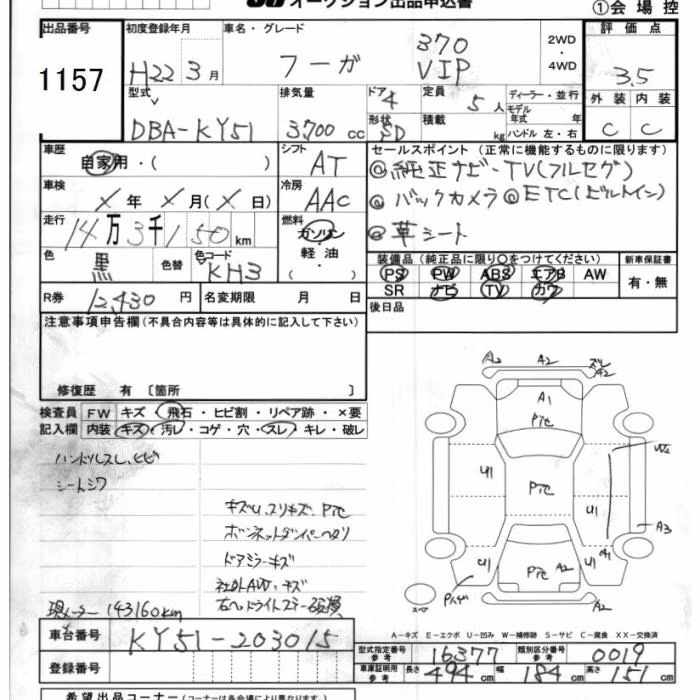 オークション出品申込書
①会場控
出品番号 初度登録年月 車名・グレード 評価点
1157 H22年3月 フーガ 370 VIP 2WD・4WD 3.5
型式 排気量 ドア 4 定員 5人 ディーラー・並行 外装 内装
DBA-KY51 3700cc 形状 SD 積載 kg モデル年式 年式 ハンドル 左・右 C C
車歴 自家用・( ) シフト AT セールスポイント(正常に機能するものに限ります)
◎純正ナビ・TV(フルセグ)
車検 X年X月(X日) 冷房 AAC ◎バックカメラ ◎ETC(ビルトイン)
走行 14万3千150km 燃料 ガソリン 軽油 ( ) ◎革シート
色 黒 色替 色コード KH3 装備品(純正品に限り○をつけてください) 新車保証書
PS PW ABS エアB AW 有・無
R券 12,430円 名変期限 月 日 SR ナビ TV カワ
注意事項申告欄(不具合内容等は具体的に記入して下さい) 後日品
修復歴 有 〔箇所 〕
検査員 FW キズ・飛石・ヒビ割・リペア跡・×要
記入欄 内装 キズ・汚レ・コゲ・穴・スレ・キレ・破レ
A2 A2 ズレ A2
A1
Pた
ハンドルスレ、ヒビ
シートシワ
U1 Pた U1 W2
キズU、スリキズ、Pた
ボンネットダンパーヘタリ
A3
ドアミラーキズ
U1 Pた A2 U1 A1
社外AW、キズ
現メーター 143160km
スペア A2
A-キズ E-エクボ U-凹み W-補修跡 S-サビ C-腐食 XX-交換済
車台番号 KY51-203015
型式指定番号 参考 16377 類別区分番号 参考 0019
登録番号 車庫証明用 参考 長さ 494cm 幅 184cm 高さ 151cm
希望出品コーナー(コーナーは各会場により異なります)